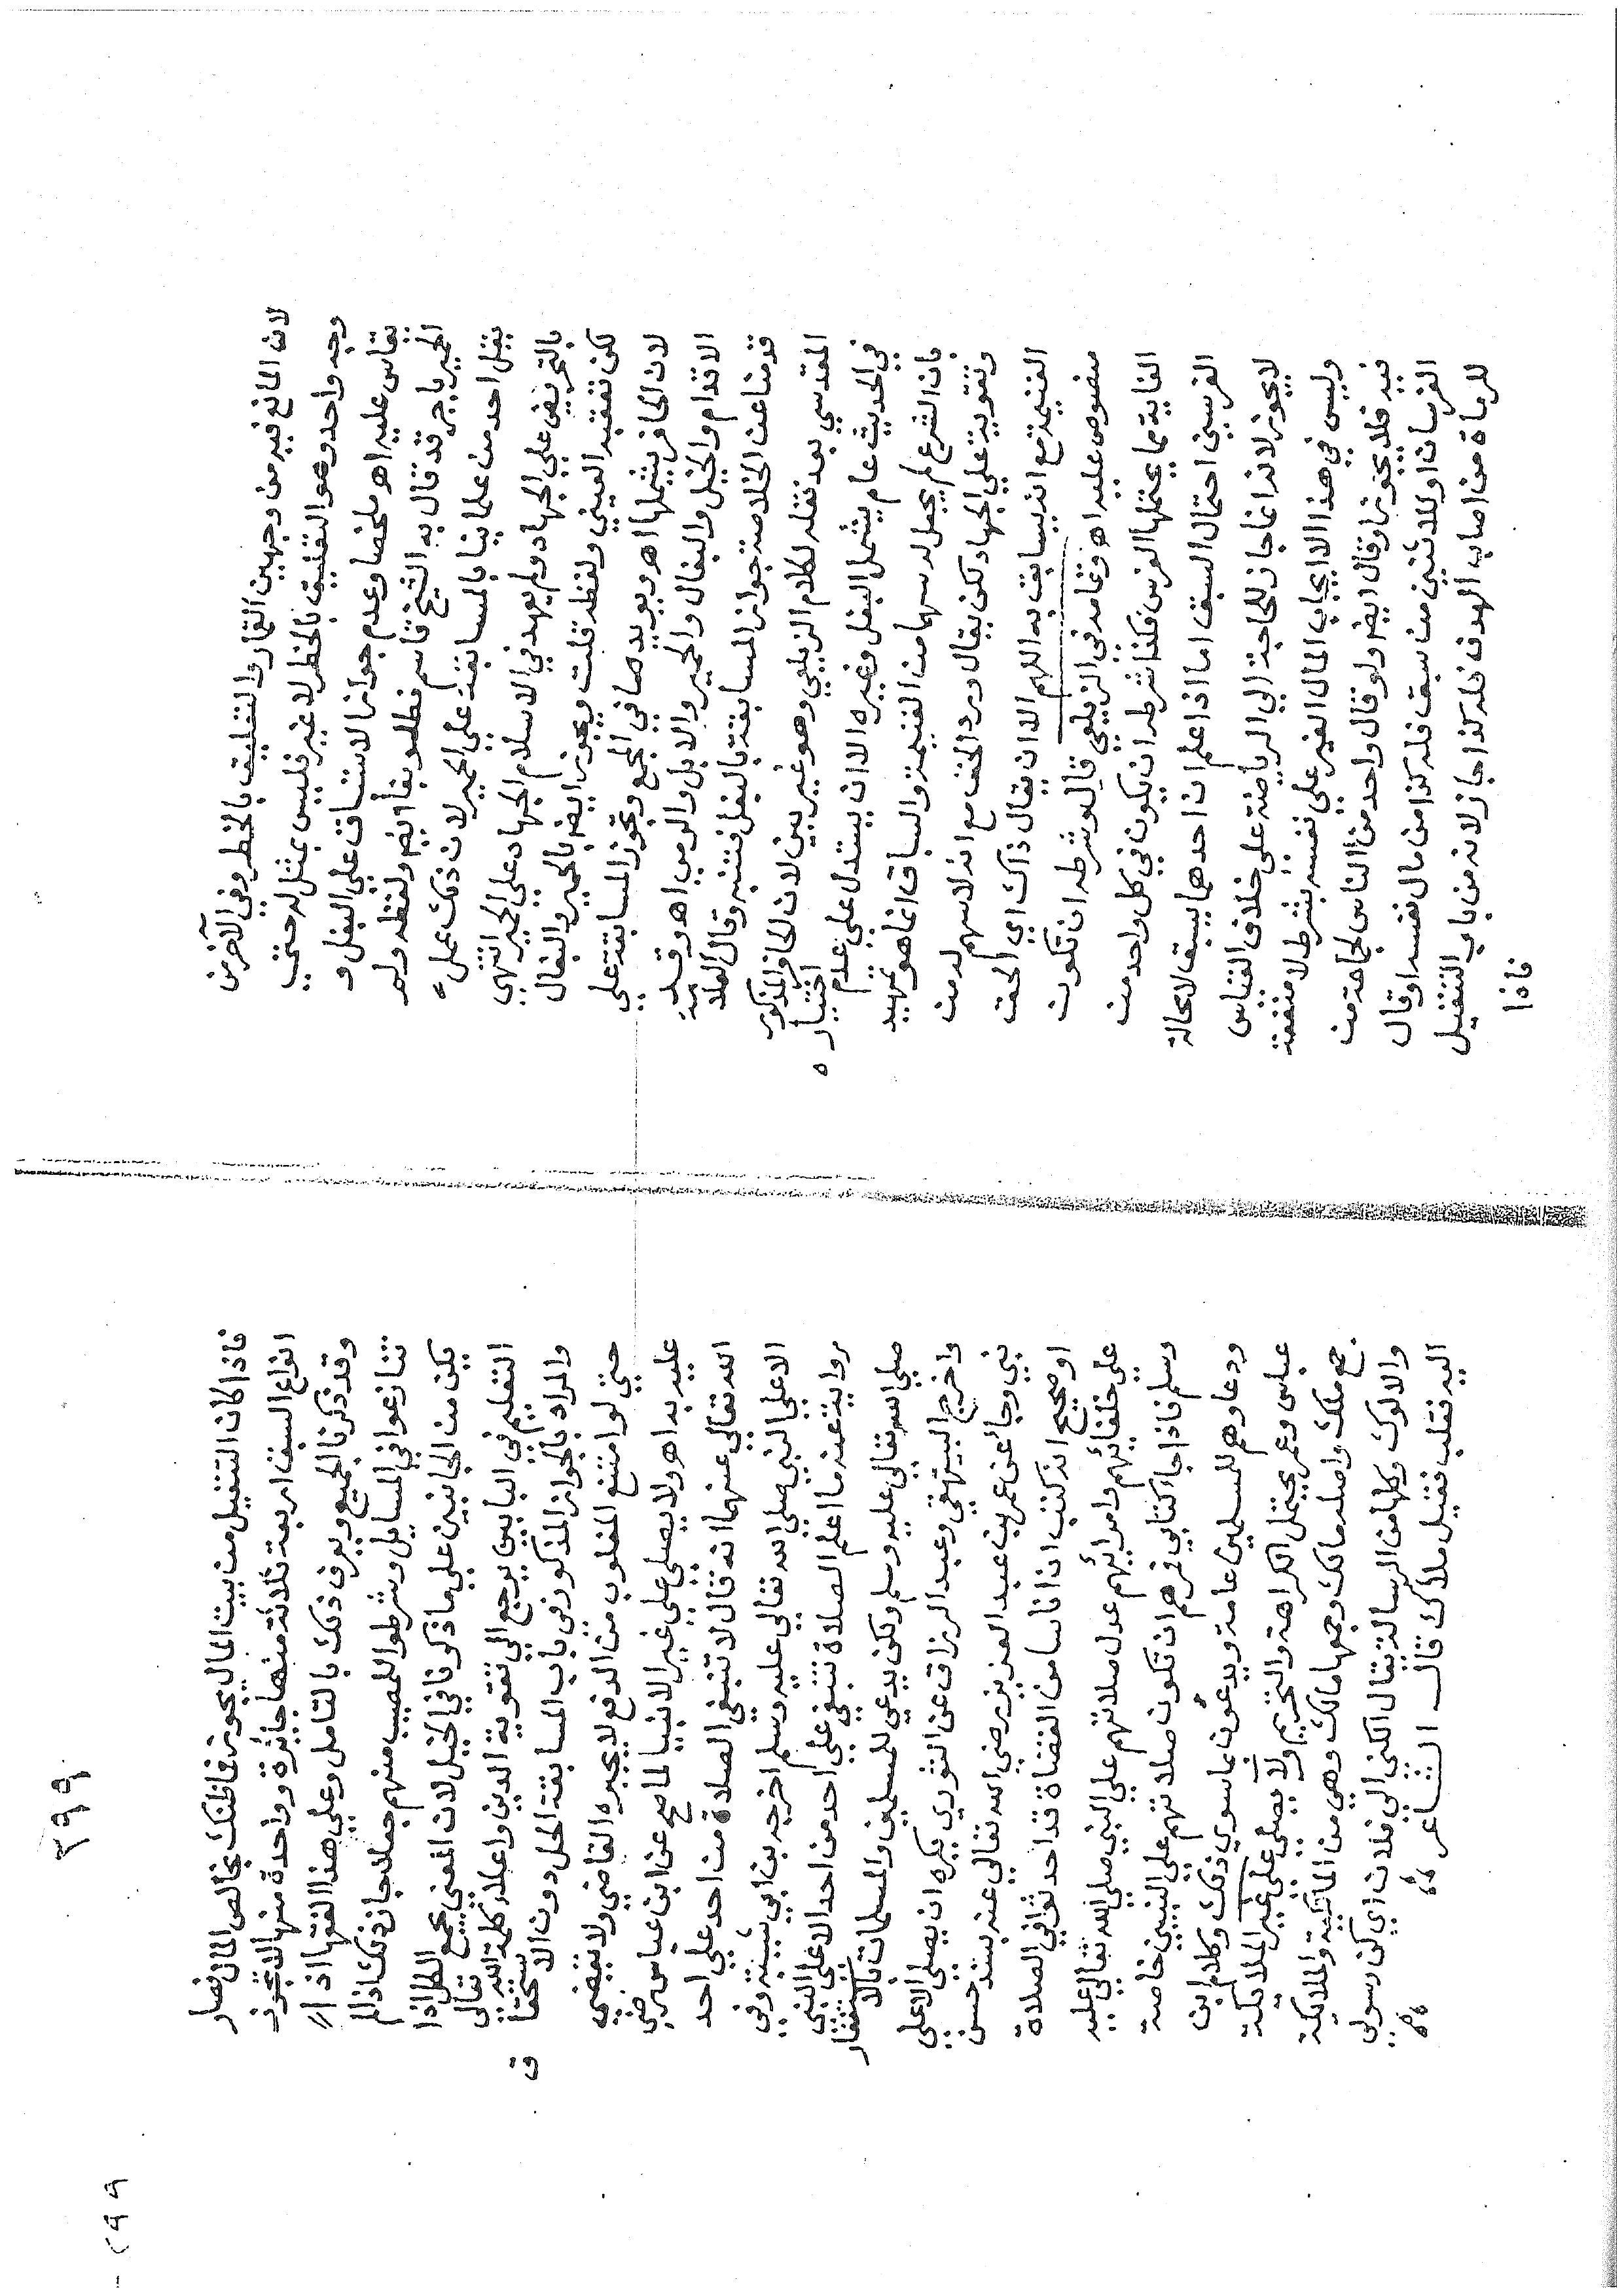 لان المانع فيه من وجهين القمار والتعليق بالخطر وفي الآخر من
وجه واحد وهو التعليق بالخطر لا غير فليس بمثل له حتي
يقاس عليه اه ملخصا وعدم جواز الاستباق علي البغل و
الحمير باجر قد قال به الشيخ قاسم فطلوبغا ايضا ولفظه ولم
يقل احد من علمائنا بالمسابقة علي الحمير لان ذلك يحل
بالتحريض علي الجهاد ولم يعهد في الاسلام الجهاد علي الحمير انتهي
لكن تعقبه العيني ولفظه قلت ويجوز ايضا بالحمير والبغال
لان الحافر يشملها اه ويويده ما في المجمع وتجوز المسابقة علي
الاقدام والخيل والبغال والحمير والابل والرمي اه وقد
قدمنا عن الخلاصة جواز المسابقة بالبغل فتنبه وقال العلامة
المقدسي بعد نقله لكلام الزيلعي وهو غير بين لان الحافر المذكور
في الحديث عام يشمل البغل وغيره الا ان يستدل علي عدم اختياره
بان الشرع لم يجعل له سهما من الغنيمة والسباق انما هو تمهيد
وتقوية علي الجهاد لكن يقال ورد الخف مع انه لا سهم له من
الغنيمة مع انه يسابق به اللهم الا ان يقال ذاك اي الخف
منصوص عليه اه وتمامه في الزيلعي قال وشرطه ان تكون
الغاية مما يحتملها الفرس وكذا شرطه ان يكون في كل واحد من
الفرسين احتمال السبق اما اذا علم ان احدهما يسبق لا محالة
لا يجوز لانه انما جاز للحاجة الي الرياضة علي خلاف القياس
وليس في هذا الا ايجاب المال للغير علي نفسه بشرط لا منفعة
فيه فلا يجوز اه وقال ايضا ولو قال واحد من الناس لجماعة من
الفرسان او للاثنين من سبق فله كذا من مال نفسه او قال
للرماة من اصاب الهدف فله كذا جاز لانه من باب التنفيل
فاذا
٣٩٩
٢٩٩
فاذا كان التنفيل من بيت المال يجوز فما ظنك بخالص المال فصار
انواع السبق اربعة ثلاثة منها جائزة وواحدة منها لا تجوز
وقد ذكرنا الجميع ويعرف ذلك بالتامل وعلي هذا الفقها اذا
تنازعوا في المسايل وشرطوا للمصيب منهم جعلا جاز ذلك اذا لم
يكن من الجانبين علي ما ذكرنا في الخيل لان المعني يجمع الكل اذا
التعليم في البابين يرجع الي تقوية الدين واعلاء كلمة الله تعالي
والمراد بالجواز المذكور في باب المسابقة الحل دون الاستحقاق
حتي لو امتنع المغلوب من الدفع لا يجبره القاضي ولا يقضي
عليه به اه ولا يصلي علي غير الانبيا لما صح عن ابن عباس رضي
الله تعالي عنهما انه قال لا تنبغي الصلاة من احد علي احد
الا علي النبي صلي الله تعالي عليه وسلم اخرجه بن ابي شيبة وفي
رواية عنه ما اعلم الصلاة تنبغي علي احد من احد الا علي النبي
صلي الله تعالي عليه وسلم ولكن يدعي للمسلمين والمسلمات بالاستغفار
واخرج البيهقي وعبد الرزاق عن الثوري يكره ان يصلي الا علي
نبي وجا عن عمر بن عبد العزيز رضي الله تعالي عنه بسند حسن
او صحيح انه كتب ان اناسا من القضاة قد احدثوا في الصلاة
علي خلفائهم وامرائهم عدل صلاتهم علي النبي صلي الله تعالي عليه
وسلم فاذا جا كتابي فمرهم ان تكون صلاتهم علي النبيين خاصة
ودعاوهم للمسلمين عامة ويدعون بما سوي ذلك وكلام ابن
عباس وعمر يحتمل الكراهة والتحريم ولا يصلي علي غير الملائكة
جمع ملك واصله مالك وجمعها مالك وهي من المألكة والملائكة
والالوك وكلها من الرسالة يقال الكني الي فلان اي كن رسولي
اليه فقلب فقيل ملأك قال الشاعر